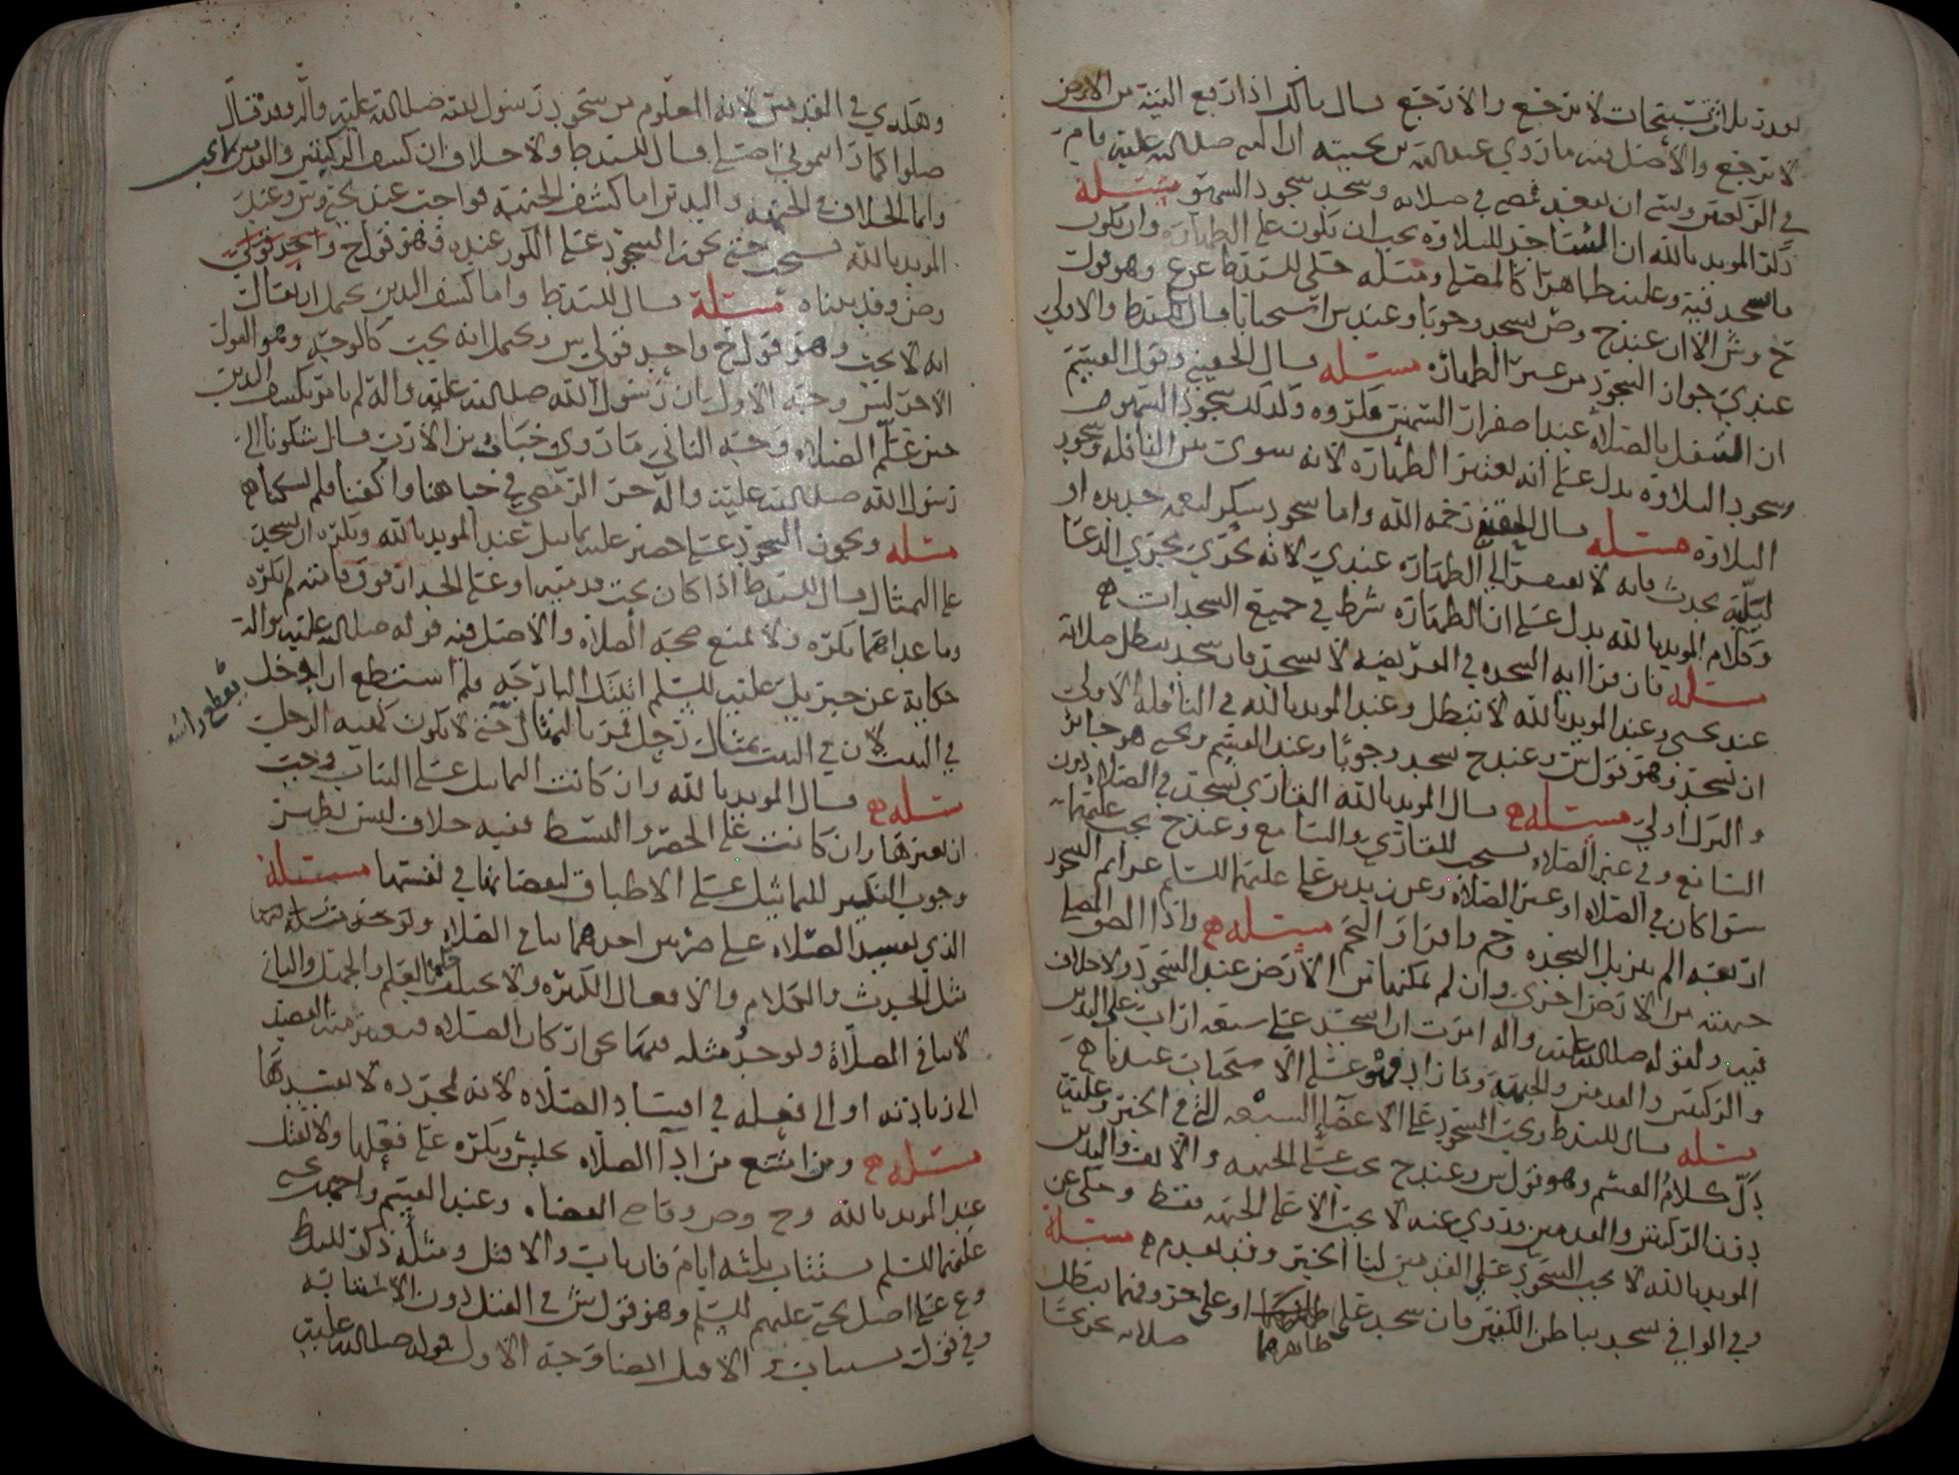 بقدر ثلاث تسبيحات لا ترجع والا ترجع قال مالك اذا رفع اليتيه من الارض
لا ترجع والأصل فيه ما روي عبدالله بن بحينه ان النبي صلى الله عليه قام من
في الركعتين ونسي ان يقعد فمضى في صلاته وسجد سجود السهو مسئلة
دلّ المويد بالله ان الساجد للتلاوة يجب ان يكون على الطهارة وان يكون
ما سجد فيه وعليه طاهرا كالمصلي ومثله حكى للسيد ط عن ع وهو قول
ح وش الا ان عند ح وص يسجد وجوبا وعند ش استحبابا قال السيد ط والاولى
عندي جواز السجود من غير الطهارة مسئله قال الحقيني وقول القسم
ان التنفل بالصلاة عند اصفرار الشمس مكروه وكذلك سجود السهو
وسجود التلاوة يدل على انه يعتبر الطهارة لانه سوى بين النافله وسجود
التلاوة مسئله قال الحقيني رحمه الله واما سجود شكر لنعمه جديدة او
لبليّة تحدث فانه لا يفتقر الى الطهارة عندي لانه يجري مجرى الدعا
وكلام المويد بالله يدل على ان الطهارة شرط في جميع السجدات
مسئله فان قرا ايه السجده في الفريضه لا يسجد فان سجد بطل صلاته
عند يحيى وعند المويد بالله لا تبطل وعند المويد بالله في النافلة الاولى
ان يسجد وهو قول ش وعند ح يسجد وجوبًا وعند القسم ويحيى هو جائز
والترك اولى مسئله قال المويد بالله القاري يسجد في الصلاة دون
السامع وفي غير الصلاه يستحب للقاري والسامع وعند ح يجب عليهما
سوا كان في الصلاه او غير الصلاة وعن زيد بن علي عليهما السلم عزايم السجود
اربعه الم تنزيل السجده وحم واقرا والنجم مسئله واذا الصق المصلي
جبهته من الارض اجزى وان لم يمكنها من الارض عند السجود ولا خلاف
فيه ولقوله صلى الله عليه واله امرت ان اسجد على سبعه اراب على اليدين
والركبتين والقدمين والجبهة وما زاد فهو على الاستحباب عندنا
مسئله قال السيد ط ويجب السجود على الاعضا السبعه التي في الخبر وعليه
دلّ كلام القسم وهو قول ش وعند ح يجب على الجبهه والانف واليدين
دون الركبتين والقدمين وروي عنه لا يجب الا على الجبهه فقط وحكى عن
المويد بالله لا يجب السجود على القدمين لنا الخبر وقد تقدم مسئلة
وفي الوافي سجد بباطن الكفين فان سجد على ظاهرهما او على حروفهما تبطل
ظاهرهما صلاته
وهكذي في القدمين لانه المعلوم من سجود رسول الله صلى الله عليه واله وقد قال
صلوا كما رايتموني اصلي قال السيد ط ولا خلاف ان كشف الركبتين والقدمين
وانما الخلاف في الجبهه واليدين اما كشف الجبهة فواجب عند يحيى وش وعند
المويد بالله يستحب حتى يجوز السجود على الكور عنده وهو قول ح واحد قولي
وص وقد بيناه مسئلة قال السيد ط واما كشف اليدين يحتمل ان يقال
انه لا يجب وهو قول ح واحد قولي ش ويحتمل انه يجب كالوجه وهو القول
الاخر لش وجه الاول بان رسول الله صلى الله عليه واله لم يامر بكشف اليدين
حين علّم الصلاه وجه الثاني ما روي خباب بن الارت قال شكونا الى
رسول الله صلى الله عليه واله حر الرمضى في جباهنا واكفنا فلم يشكنا
مسئله ويجوز السجود على حصير عليه تماثيل عند المويد بالله ويكره ان يسجد
على التمثال قال السيد ط اذا كان تحت قدميه او على الجدار فوق قامته لم يكره
وما عداهما يكره ولا يمنع صحة الصلاة والاصل فيه قوله صلى الله عليه واله
حكاية عن جبريل عليه السلم اتيتك البارحه فلم استطع ان ادخل
في البيت لان في البيت تمثال رجل فمر بالتمثال حتى لا يكون كهيه الرجل
يقطع راسه
مسئله قال المويد بالله وان كانت التماثيل على الثياب وجب
ان يغيرها وان كانت على الحصر والبسط ففيه خلاف ليس يظهر
وجوب التكسير للتماثيل على الاطباق لنقصانها في نفسها مسئلة
الذي يفسد الصلاه على ضربين احدهما ينافي الصلاة
مثل الحدث والكلام والافعال الكثره ولا يختلف فيه العلم والجهل والثاني
لا ينافي الصلاة ولوجود مثله فيها نحو اركان الصلاه فيعتبر فيه القصد
الى زيادته او الى فعله في افساد الصلاه لانه بمجرده لا يفسدها
مسئله ومن امتنع من ادا الصلاه يحبس ويكره على فعلها ولا يقتل
عند المويد بالله وح وص وعند القسم واحمد
عليهما السلم يستتاب ثلثه ايام فان تاب والا قتل ومثله ذكر السيد ط
وع على اصل يحيى عليهم السلم وهو قول ش في القتل دون الاستتابه
وفي قول يستتاب والا قتل ايضا وجه الاول قوله صلى الله عليه